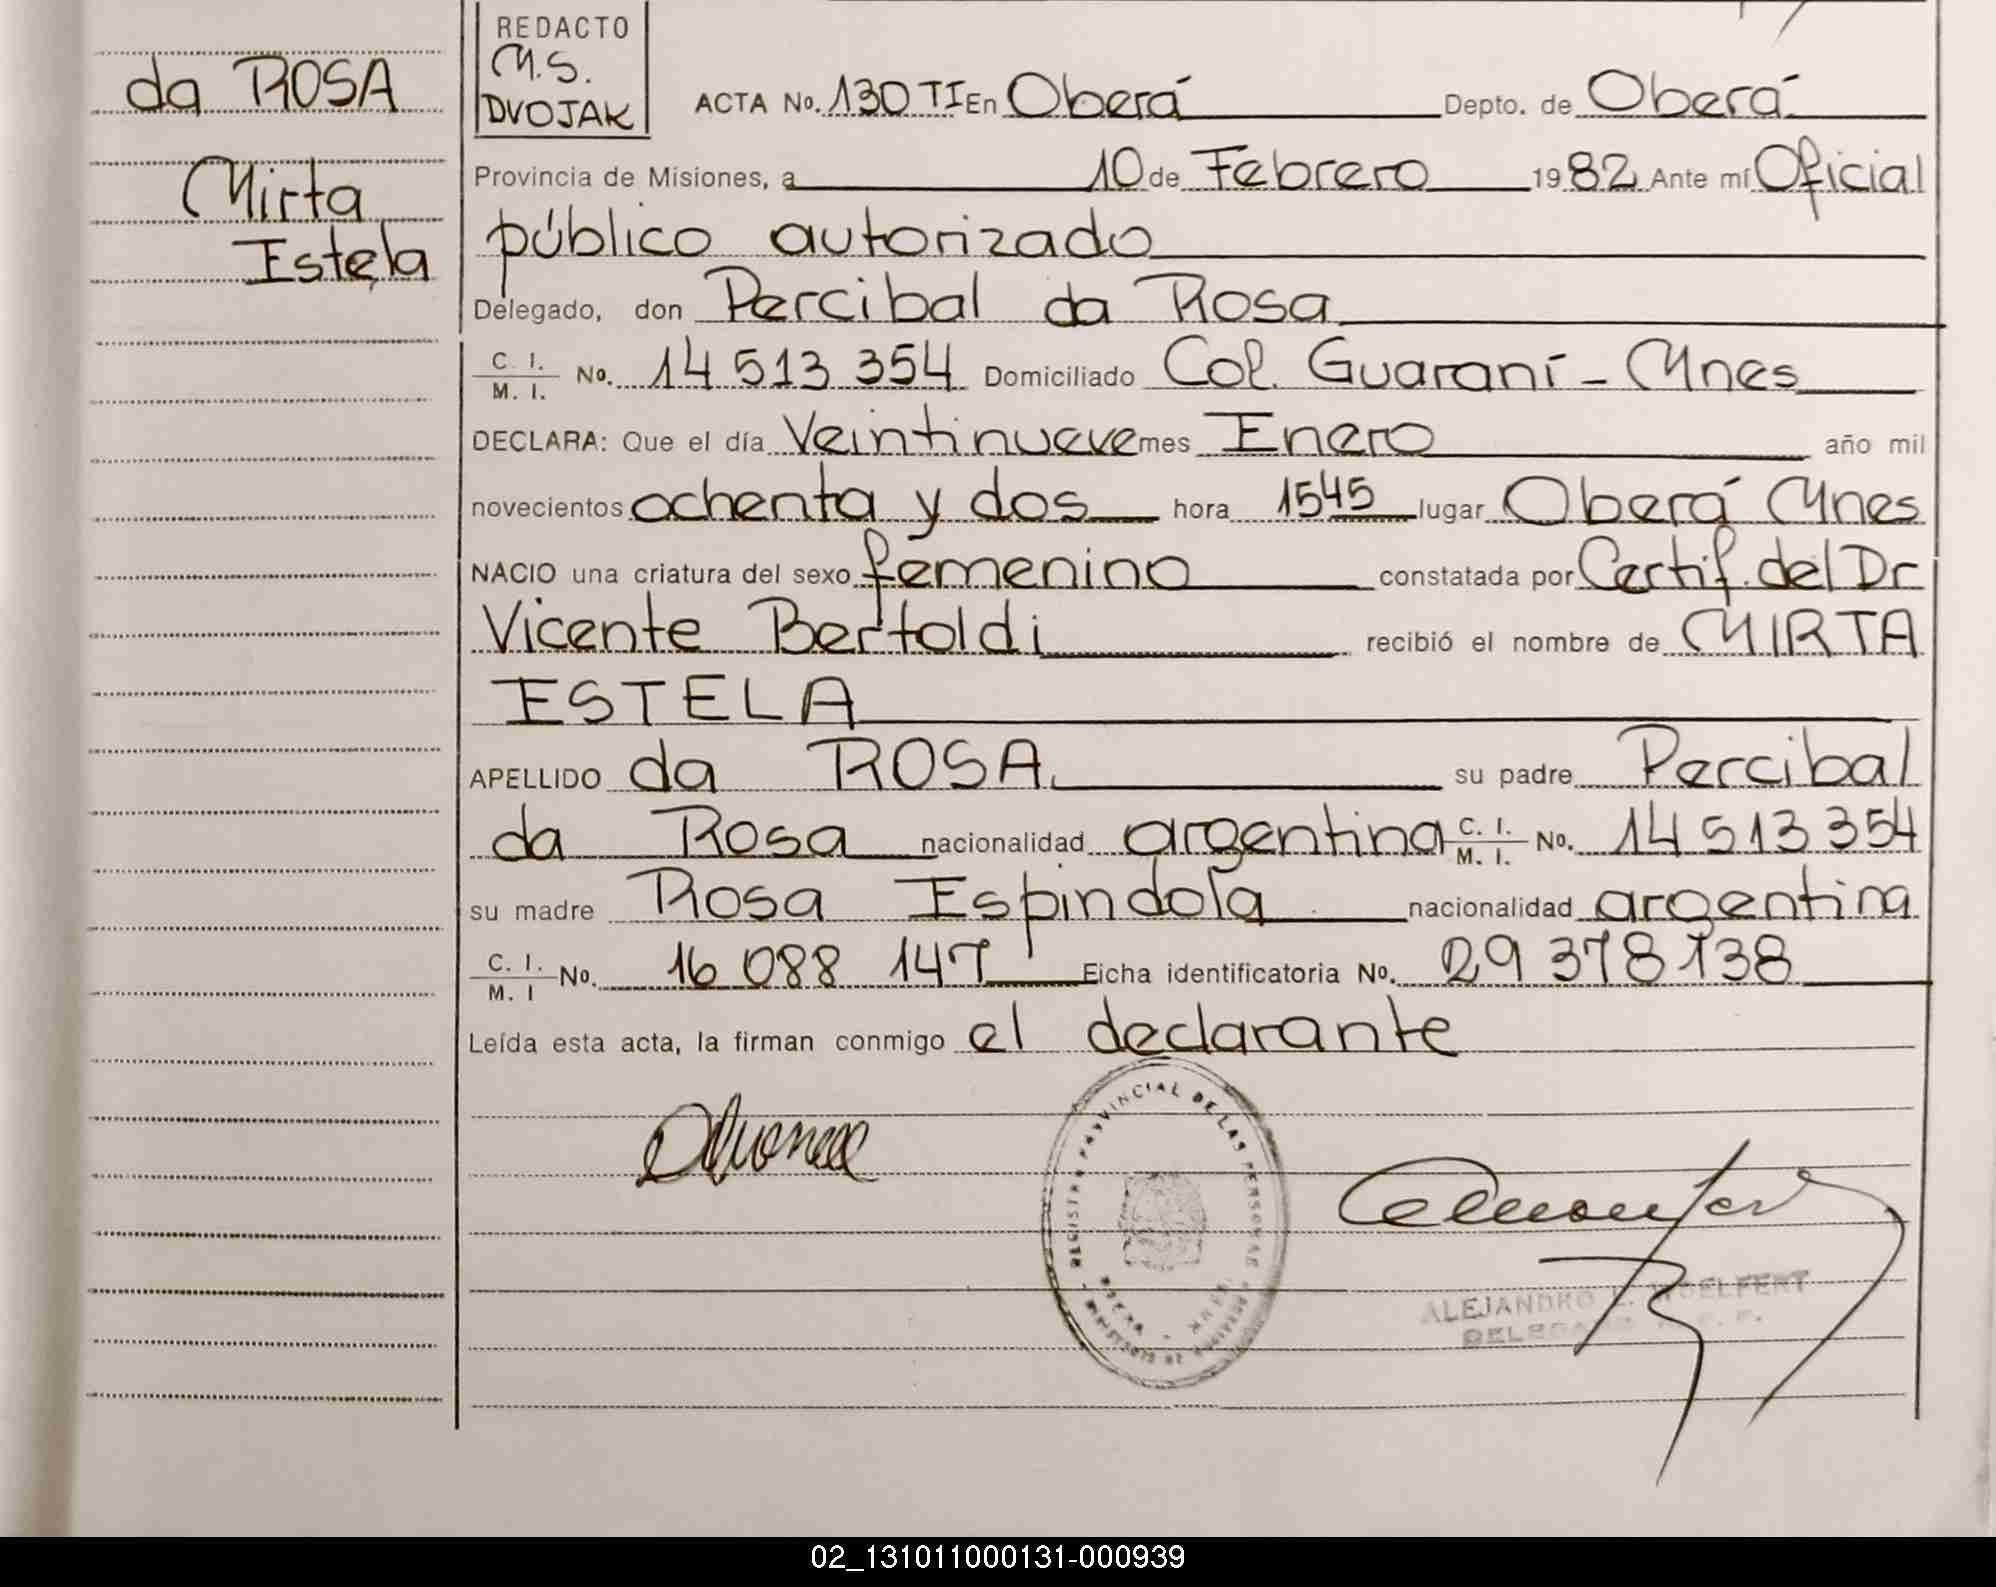 da ROSA
Mirta
Estela
REDACTO
M.S.
DVOJAK
ACTA No. 130 TI En Oberá Depto. de Oberá
Provincia de Misiones, a 10 de Febrero 1982 Ante mí Oficial
público autorizado
Delegado, don Percibal da Rosa
C. I. / M. I. No. 14 513 354 Domiciliado Col. Guaraní - Mnes
DECLARA: Que el día Veintinueve mes Enero año mil
novecientos ochenta y dos hora 1545 lugar Oberá Mnes
NACIO una criatura del sexo femenino constatada por Certif. del Dr
Vicente Bertoldi recibió el nombre de MIRTA
ESTELA
APELLIDO da ROSA su padre Percibal
da Rosa nacionalidad argentina C. I. / M. I. No. 14 513 354
su madre Rosa Espindola nacionalidad argentina
C. I. / M. I No. 16 088 147 Ficha identificatoria No. 29 378 138
Leída esta acta, la firman conmigo el declarante
REGISTRO PROVINCIAL DE LAS PERSONAS
ALEJANDRO L. WOELFERT
02_131011000131-000939